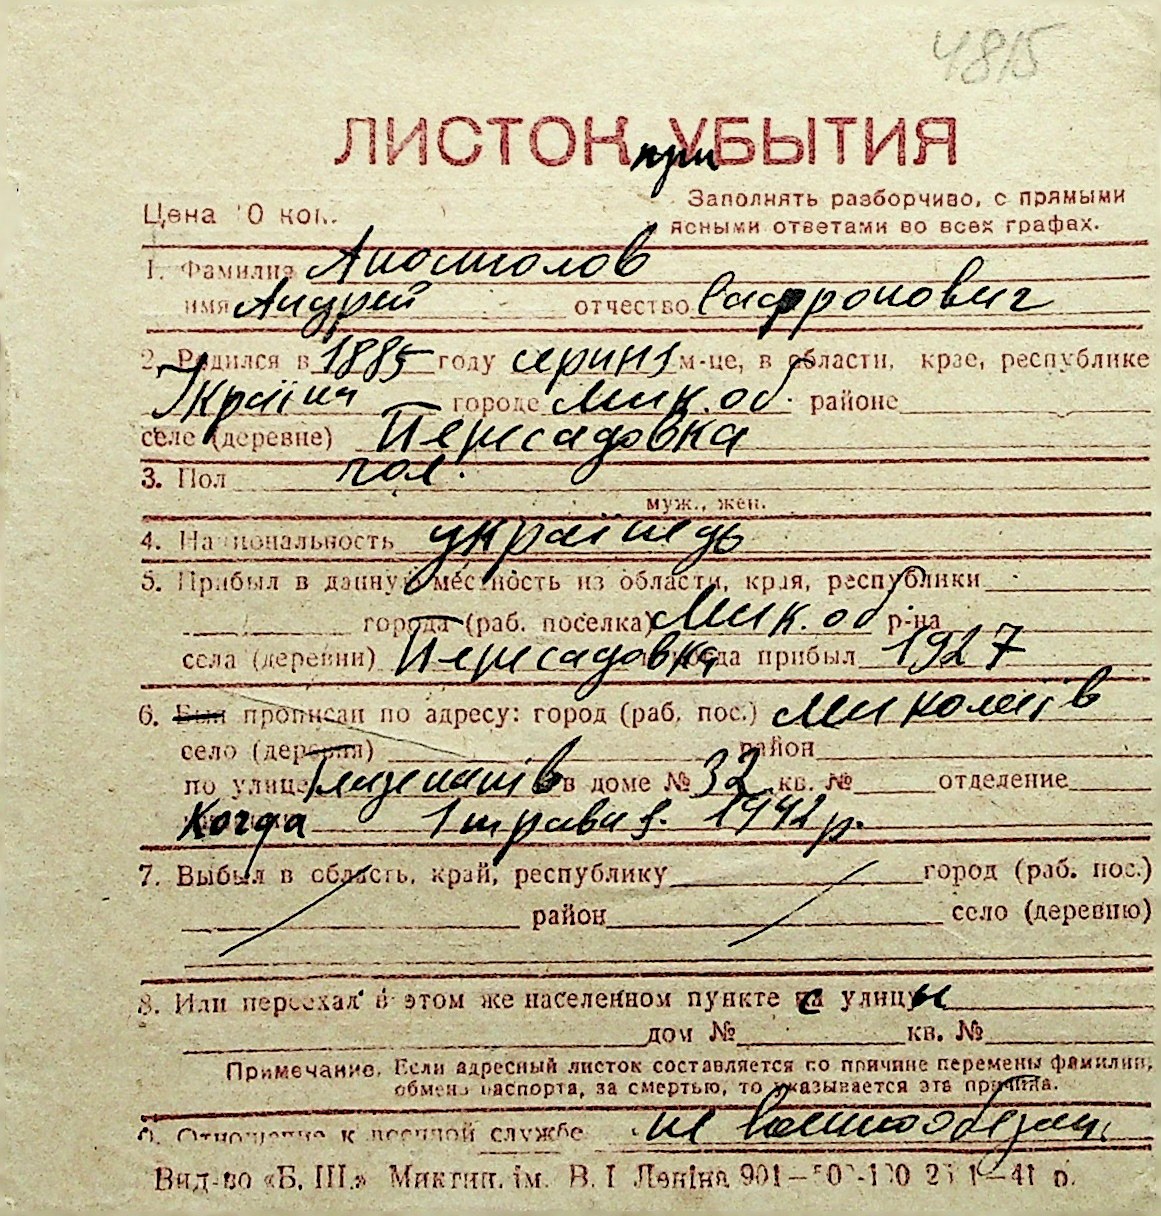 4815
ЛИСТОК УБЫТИЯ
при
Цена 10 коп.
Заполнять разборчиво, с прямыми
ясными ответами во всех графах.
1. Фамилия Апостолов
имя Андрей отчество Сафронович
2. Родился в 1885 году серпня м-це, в области, крае, республике
Україна городе Мик. об. районе
селе (деревне) Пересадовка
3. Пол чол.
муж., жен.
4. Национальность українець
5. Прибыл в данную местность из области, края, республики
города (раб. поселка) Мик. об р-на
села (деревни) Пересадовка когда прибыл 1927
6. Был прописан по адресу: город (раб. пос.) Миколаїв
село (деревня) район
по улице в доме № 32 кв. № отделение
Когда 1 травня 1942 р.
7. Выбыл в область, край, республику город (раб. пос.)
район село (деревню)
8. Или переехал в этом же населенном пункте с улицы
дом № кв. №
Примечание. Если адресный листок составляется по причине перемены фамилии,
обмена паспорта, за смертью, то указывается эта причина.
9. Отношение к военной службе не военнообязан.
Вид-во «Б. Ш.» Микгип. ім. В. І Леніна 901— 41 р.